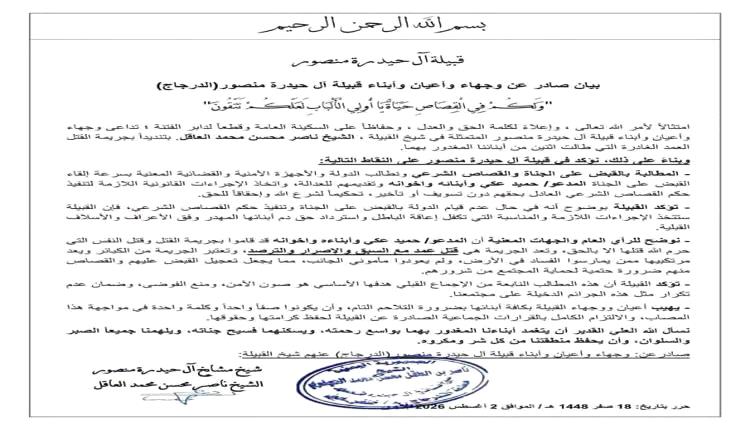 بسم الله الرحمن الرحيم
قبيلة آل حيدرة منصور
بيان صادر عن وجهاء وأعيان وأبناء قبيلة آل حيدرة منصور (الدرجاج)
"وَلَكُمْ فِي القِصَاصِ حَيَاةٌ يَا أُولِي الأَلْبَابِ لَعَلَّكُمْ تَتَّقُونَ"
امتثالاً لأمر الله تعالى ، وإعلاءً لكلمة الحق والعدل ، وحفاظاً على السكينة العامة وقطعاً لدابر الفتنة ؛ تداعى وجهاء
وأعيان وأبناء قبيلة آل حيدرة منصور المتمثلة في شيخ القبيلة ، الشيخ ناصر محسن محمد العاقل. بتنديداً بجريمة القتل
العمد الغادرة التي طالت اثنين من أبنائنا المغدور بهما.
وبناءً على ذلك، نؤكد في قبيلة آل حيدرة منصور على النقاط التالية:
- المطالبة بالقبض على الجناة والقصاص الشرعي ونطالب الدولة والأجهزة الأمنية والقضائية المعنية بسرعة إلقاء
القبض على الجناة المدعو/ حميد عكي وأبنائه وإخوانه وتقديمهم للعدالة، واتخاذ الإجراءات القانونية اللازمة لتنفيذ
حكم القصاص الشرعي العادل بحقهم دون تسويف أو تأخير، تحكيماً لشرع الله وإحقاقاً للحق.
- تؤكد القبيلة بوضوح أنه في حال عدم قيام الدولة بالقبض على الجناة وتنفيذ حكم القصاص الشرعي، فإن القبيلة
ستتخذ الإجراءات اللازمة والمناسبة التي تكفل إعاقة الباطل واسترداد حق دم أبنائها المهدر وفق الأعراف والأسلاف
القبلية.
- نوضح للرأي العام والجهات المعنية أن المدعو/ حميد عكي وأبناءه وإخوانه قد قاموا بجريمة القتل وقتل النفس التي
حرم الله قتلها إلا بالحق، وتعد الجريمة هي قتل عمد مع السبق والإصرار والترصد، وتعتبر الجريمة من الكبائر ويعد
مرتكبيها ممن يمارسوا الفساد في الأرض، ولم يعودوا مأموني الجانب، مما يجعل تعجيل القبض عليهم والقصاص
منهم ضرورة حتمية لحماية المجتمع من شرورهم.
- تؤكد القبيلة أن هذه المطالب النابعة من الإجماع القبلي هدفها الأساسي هو صون الأمن، ومنع الفوضى، وضمان عدم
تكرار مثل هذه الجرائم الدخيلة على مجتمعنا.
- يهيب أعيان ووجهاء القبيلة بكافة أبنائها بضرورة التلاحم التام، وأن يكونوا صفاً واحداً وكلمة واحدة في مواجهة هذا
المصاب، والالتزام الكامل بالقرارات الجماعية الصادرة عن القبيلة لحفظ كرامتها وحقوقها.
نسأل الله العلي القدير أن يتغمد أبناءنا المغدور بهما بواسع رحمته، ويسكنهما فسيح جناته، ويلهمنا جميعاً الصبر
والسلوان، وأن يحفظ منطقتنا من كل شر ومكروه.
صادر عن: وجهاء وأعيان وأبناء قبيلة آل حيدرة منصور (الدرجاج) عنهم شيخ القبيلة:
شيخ مشايخ آل حيدرة منصور
الشيخ ناصر محسن محمد العاقل
حرر بتاريخ: 18 صفر 1448 هـ / الموافق 2 أغسطس 2026